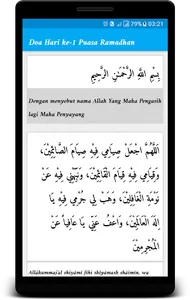 79% 03:21
Doa Hari ke-1 Puasa Ramadhan
بِسْمِ اللَّهِ الرَّحْمَنِ الرَّحِيمِ
Dengan menyebut nama Allah Yang Maha Pengasih
lagi Maha Penyayang
اَللَّهُمَّ اجْعَلْ صِيَامِي فِيْهِ صِيَامَ الصَّائِمِيْنَ،
وَقِيَامِي فِيْهِ قِيَامَ الْقَائِمِيْنَ، وَنَبِّهْنِي فِيْهِ عَنْ
نَوْمَةِ الْغَافِلِيْنَ، وَهَبْ لِي جُرْمِي فِيْهِ يَا
إِلَهَ الْعَالَمِيْنَ، وَاعْفُ عَنِّي يَا عَافِياً عَنِ
الْمُجْرِمِيْنَ
Allâhumma'al shiyâmî fîhi shiyâmash shâimin, wa